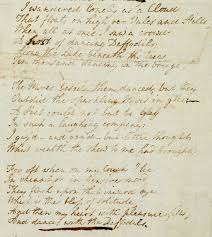 I wandered lonely as a Cloud
That floats on high o'er Vales and Hills,
When all at once I saw a crowd
A host of dancing Daffodils;
Along the Lake, beneath the trees,
Ten thousand dancing in the breeze.
The Waves beside them danced, but they
Outdid the sparkling Waves in glee:—
A Poet could not but be gay
In such a laughing company:
I gaz'd—and gaz'd—but little thought
What wealth the shew to me had brought:
For oft when on my couch I lie
In vacant or in pensive mood,
They flash upon that inward eye
Which is the bliss of solitude,
And then my heart with pleasure fills,
And dances with the Daffodils.